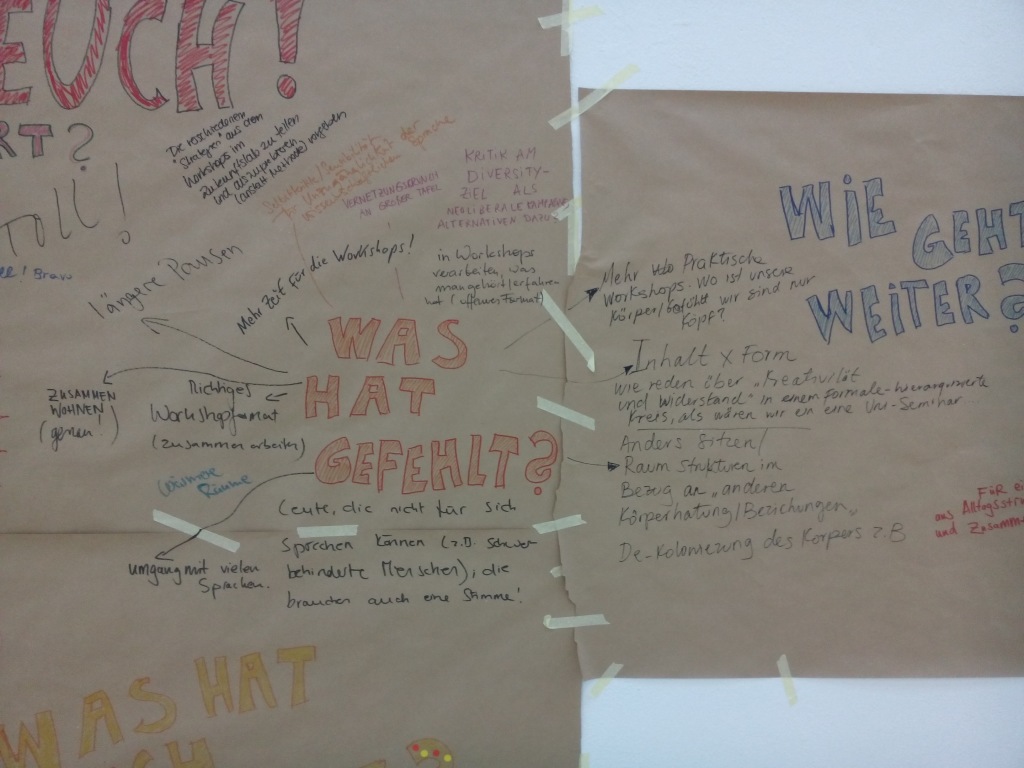 EUCH!
RT?
TOLL!
Bravo
Die verschiedenen
"Strategien" aus dem
Workshops im
Zukunftslab zu teilen
und auszuprobieren
(anstatt
der
Sprache
VERNETZUNGSVERSUCH
AN GROßER TAFEL
KRITIK AM
DIVERSITY-
ZIEL ALS
NEOLIBERALE
ALTERNATIVEN DAZU
längere Pausen
Mehr Zeit für die Workshops!
in Workshops
verarbeiten, was
man gehört/erfahren
hat (offenes Format)
WAS
HAT
GEFEHLT?
ZUSAMMEN
WOHNEN
(genau!)
Richtiges
Workshopformat
(zusammen arbeiten)
(Wärmere
Räume
Leute, die nicht für sich
sprechen können (z.B. schwer
behinderte Menschen), die
brauchen auch eine Stimme!
umgang mit vielen
Sprachen.
WAS HAT
?
WIE
GEHT
WEITER?
Mehr Praktische
Workshops. Wo ist unsere
Körper/ wir sind nur
Kopf?
Inhalt x Form
wie reden über "Kreativität
und Widerstand" in einem
Kreis, als wären wir in eine Uni-Seminar...
Anders Sitzen/
Raum strukturen im
Bezug an "anderen
Körperhaltung/Beziehungen"
De-Kolonizung des Körpers z.B
FÜR ei
aus Alltags
und Zusamm